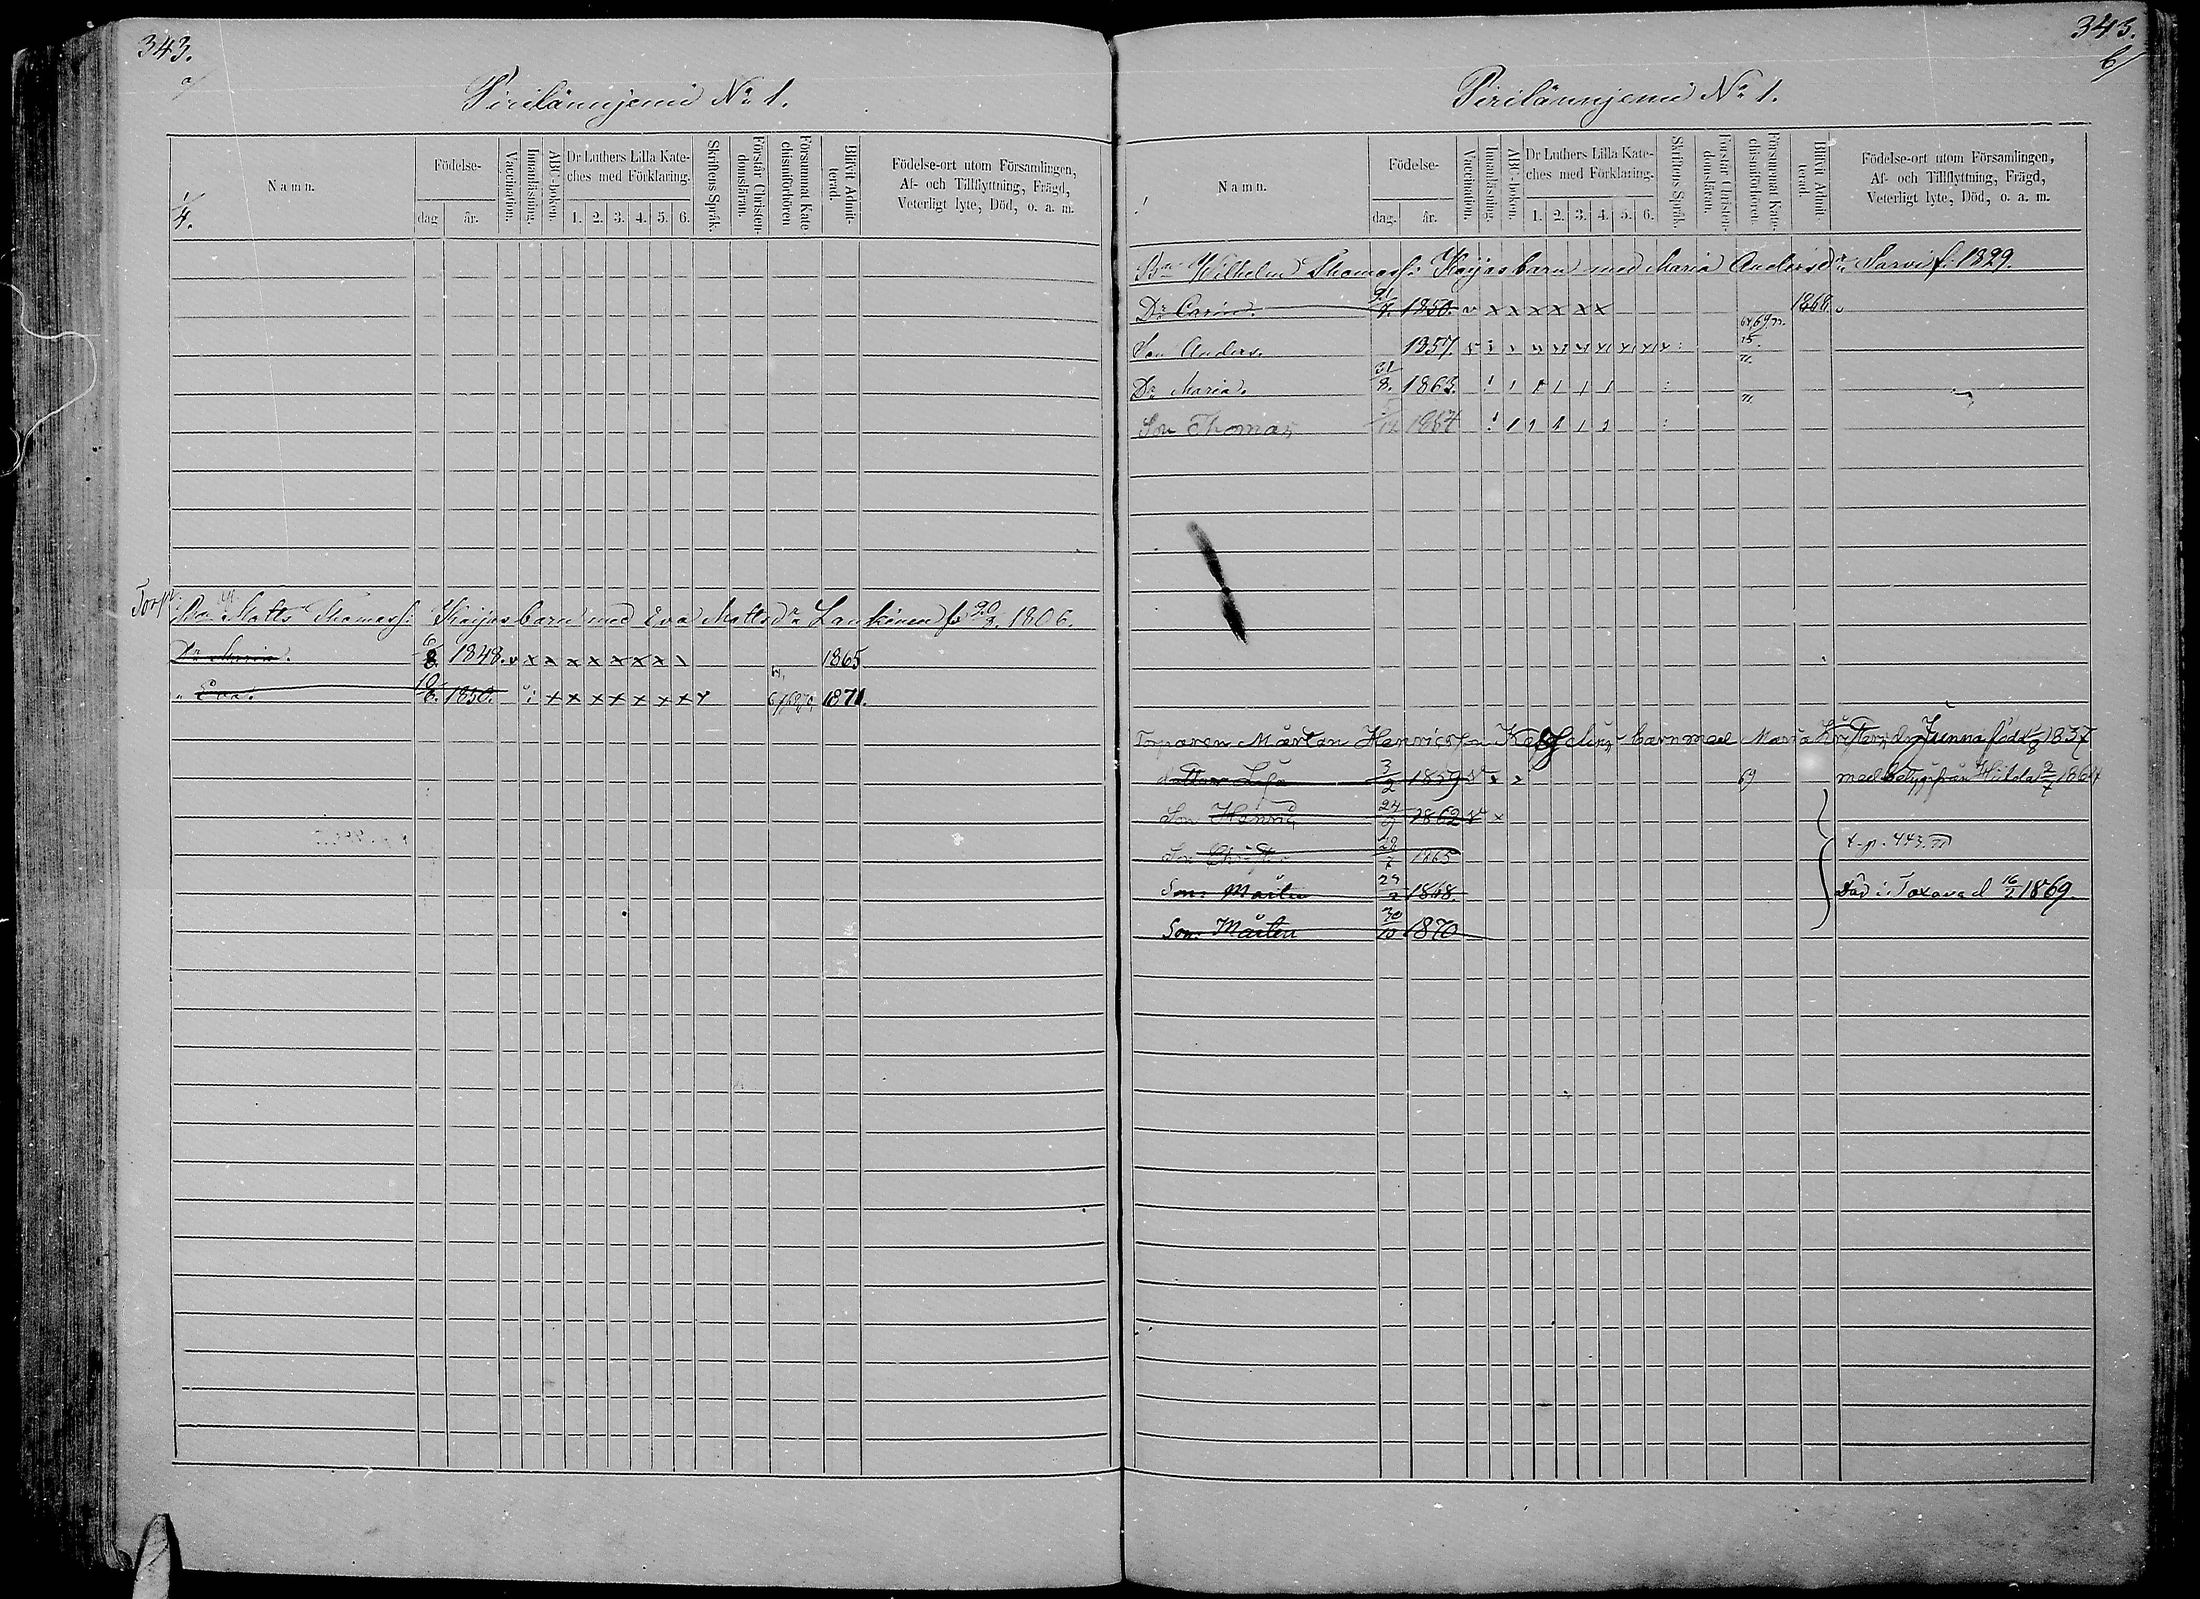 343.
a/
Pirilänmjemi No 1.
1/4.
Namn.
Födelse-
dag
år.
Vaccination.
Innanläsning.
ABC-boken.
Dr Luthers Lilla Kate-
ches med Förklaring.
1. 2. 3. 4. 5. 6.
Skriftens Språk.
Förstår Christen-
domsläran.
Försummat Kate
chismiförhören
Blifvit Admit-
terad.
Födelse-ort utom Församlingen,
Af- och Tillflyttning, Frägd,
Veterligt lyte, Död, o. a. m.
Torp
Matts Thomass: Kaijas barn med Eva Mattsdr Lankinen f. 20/2. 1806.
Dr Maria. 6/8. 1848. v x x x x x x x \ 1865
" Eva. 10/6. 1850. x x x x x x x 1871.
343.
b/
Pirilänmjemi No 1.
Namn.
Födelse-
dag.
år.
Vaccination.
Innanläsning.
ABC-boken.
Dr Luthers Lilla Kate-
ches med Förklaring.
1. 2. 3. 4. 5. 6.
Skriftens Språk.
Förstår Christen-
domsläran.
Försummat Kate-
chismiförhören.
Blifvit Admit-
terad.
Födelse-ort utom Församlingen,
Af- och Tillflyttning, Frägd,
Veterligt lyte, Död, o. a. m.
Wilhelm Thomass: Kaijas barn med Maria Andersdr Sarvi f. 1829.
Dr Carin. 1850. v x x x x x x 1868.
Son Anders. 1857.
Dr Maria. 31/8. 1863.
Son Thomas 1864
Torparen Mårten Henricsson barn med Maria Kristersdr Junna född 1837
dotter Lisa 3/2 1859 v x 69 med betyg från Hiitola 2/7 1864
Son Henric 24/9 1862 v x
Son Christer 28/7 1865 t. p. 443. 71
Son Mårten 1868. Död i Taxavad 16/2 1869.
Son Mårten 30/10 1870